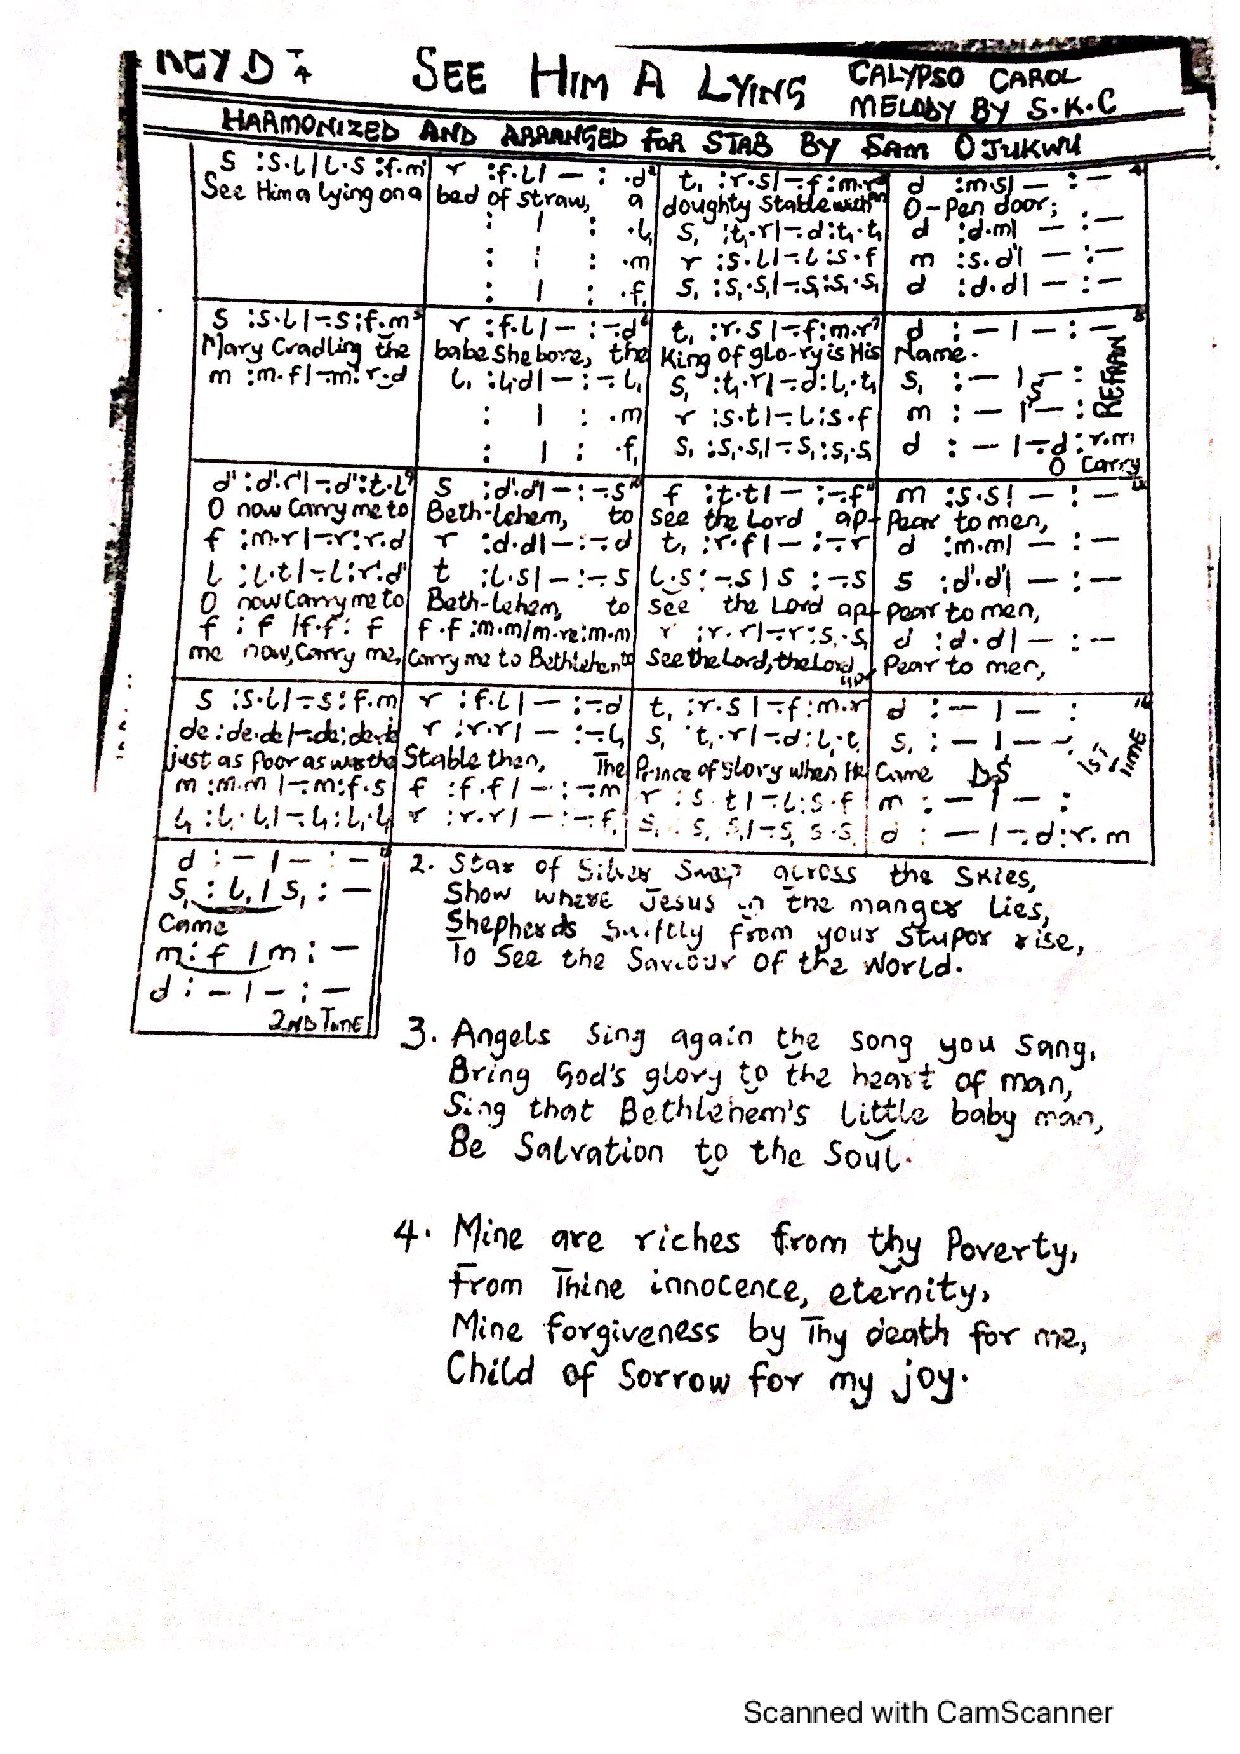 KEY D 4
SEE HIM A LYING
CALYPSO CAROL
MELODY BY S.K.C
HARMONIZED AND ARRANGED FOR STAB BY SAM OJUKWU
s :s.l | l.s :f.m r :f.l | — : .d t, :r.s | -.f :m.r d :m.s | — : —
See Him a lying on a bed of straw, a doughty stable with O-Pen door;
: | : .l, s, :t,.r | -.d :t,.t, d :d.m | — : —
: : : .m r :s.l | -.l :s.f m :s.d' | — : —
: | : .f, s, :s,.s, | -.s, :s,.s, d :d.d | — : —
s :s.l | -.s :f.m r :f.l | — : -.d t, :r.s | -.f :m.r d : — | — : —
Mary Cradling the babe She bore, the King of glo-ry is His Name.
m :m.f | -.m :r.d l, :l,.d | — : -.l, s, :t,.r | -.d :l,.t, s, : — | s, — :
: | : .m r :s.t | -.l :s.f m : — | — :
: | : .f, s, :s,.s, | -.s, :s,.s, d : — | -.d :r.m
REFRAIN
O Carry
d' :d'.r' | -.d' :t.l s :d'.d' | — : -.s f :t.t | — : -.f m :s.s | — : —
O now Carry me to Beth-lehem, to see the Lord ap- Pear to men,
f :m.r | -.r :r.d r :d.d | — : -.d t, :r.f | — : -.r d :m.m | — : —
l :l.t | -.l :r'.d' t :l.s | — : -.s l.s : -.s | s : -.s s :d'.d' | — : —
O now Carry me to Beth-lehem, to see the Lord ap- pear to men,
f : f | f.f : f f.f :m.m | m.re :m.m r :r.r | -.r :s,.s, d :d.d | — : —
me now, Carry me, Carry me to Bethlehem to See the Lord, the Lord ap- Pear to men,
s :s.l | -.s :f.m r :f.l | — : -.d t, :r.s | -.f :m.r d : — | — :
de :de.de | -.de :de.de r :r.r | — : -.l, s, t,.r | -.d :l,.t, s, : — | — -
just as Poor as was the Stable then, The Prince of glory when He Came DS
1ST TIME
m :m.m | -.m :f.s f :f.f | — : -.m r :s t | -.l :s.f m : — | — :
l, :l,.l, | -.l, :l,.l, r :r.r | — : -.f, s, s, s, | -.s, s.s, d : — | -.d :r.m
d : — | — : —
s, : l, | s, : —
Came
m : f | m : —
d : — | — : —
2ND TIME
2. Star of Silver Sweep across the Skies,
Show where Jesus in the manger Lies,
Shepherds Swiftly from your Stupor rise,
To See the Saviour of the World.
3. Angels Sing again the song you Sang,
Bring God's glory to the heart of man,
Sing that Bethlehem's Little baby man,
Be Salvation to the Soul.
4. Mine are riches from thy Poverty,
From Thine innocence, eternity,
Mine forgiveness by Thy death for me,
Child of Sorrow for my joy.
Scanned with CamScanner